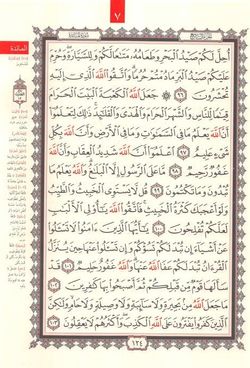 ٧
المائدة
أُحِلَّ لَكُمْ صَيْدُ الْبَحْرِ وَطَعَامُهُ مَتَاعًا لَكُمْ وَلِلسَّيَّارَةِ وَحُرِّمَ
عَلَيْكُمْ صَيْدُ الْبَرِّ مَا دُمْتُمْ حُرُمًا وَاتَّقُوا اللَّهَ الَّذِي إِلَيْهِ
تُحْشَرُونَ ٩٦ جَعَلَ اللَّهُ الْكَعْبَةَ الْبَيْتَ الْحَرَامَ
قِيَامًا لِلنَّاسِ وَالشَّهْرَ الْحَرَامَ وَالْهَدْيَ وَالْقَلَائِدَ ذَلِكَ لِتَعْلَمُوا
أَنَّ اللَّهَ يَعْلَمُ مَا فِي السَّمَاوَاتِ وَمَا فِي الْأَرْضِ وَأَنَّ اللَّهَ بِكُلِّ
شَيْءٍ عَلِيمٌ ٩٧ اعْلَمُوا أَنَّ اللَّهَ شَدِيدُ الْعِقَابِ وَأَنَّ اللَّهَ
غَفُورٌ رَحِيمٌ ٩٨ مَا عَلَى الرَّسُولِ إِلَّا الْبَلَاغُ وَاللَّهُ يَعْلَمُ مَا
تُبْدُونَ وَمَا تَكْتُمُونَ ٩٩ قُلْ لَا يَسْتَوِي الْخَبِيثُ وَالطَّيِّبُ
وَلَوْ أَعْجَبَكَ كَثْرَةُ الْخَبِيثِ فَاتَّقُوا اللَّهَ يَا أُولِي الْأَلْبَابِ
لَعَلَّكُمْ تُفْلِحُونَ ١٠٠ يَا أَيُّهَا الَّذِينَ آمَنُوا لَا تَسْأَلُوا
عَنْ أَشْيَاءَ إِنْ تُبْدَ لَكُمْ تَسُؤْكُمْ وَإِنْ تَسْأَلُوا عَنْهَا حِينَ يُنَزَّلُ
الْقُرْآنُ تُبْدَ لَكُمْ عَفَا اللَّهُ عَنْهَا وَاللَّهُ غَفُورٌ حَلِيمٌ ١٠١ قَدْ
سَأَلَهَا قَوْمٌ مِنْ قَبْلِكُمْ ثُمَّ أَصْبَحُوا بِهَا كَافِرِينَ ١٠٢
مَا جَعَلَ اللَّهُ مِنْ بَحِيرَةٍ وَلَا سَائِبَةٍ وَلَا وَصِيلَةٍ وَلَا حَامٍ وَلَكِنَّ
الَّذِينَ كَفَرُوا يَفْتَرُونَ عَلَى اللَّهِ الْكَذِبَ وَأَكْثَرُهُمْ لَا يَعْقِلُونَ ١٠٣
١٢٤